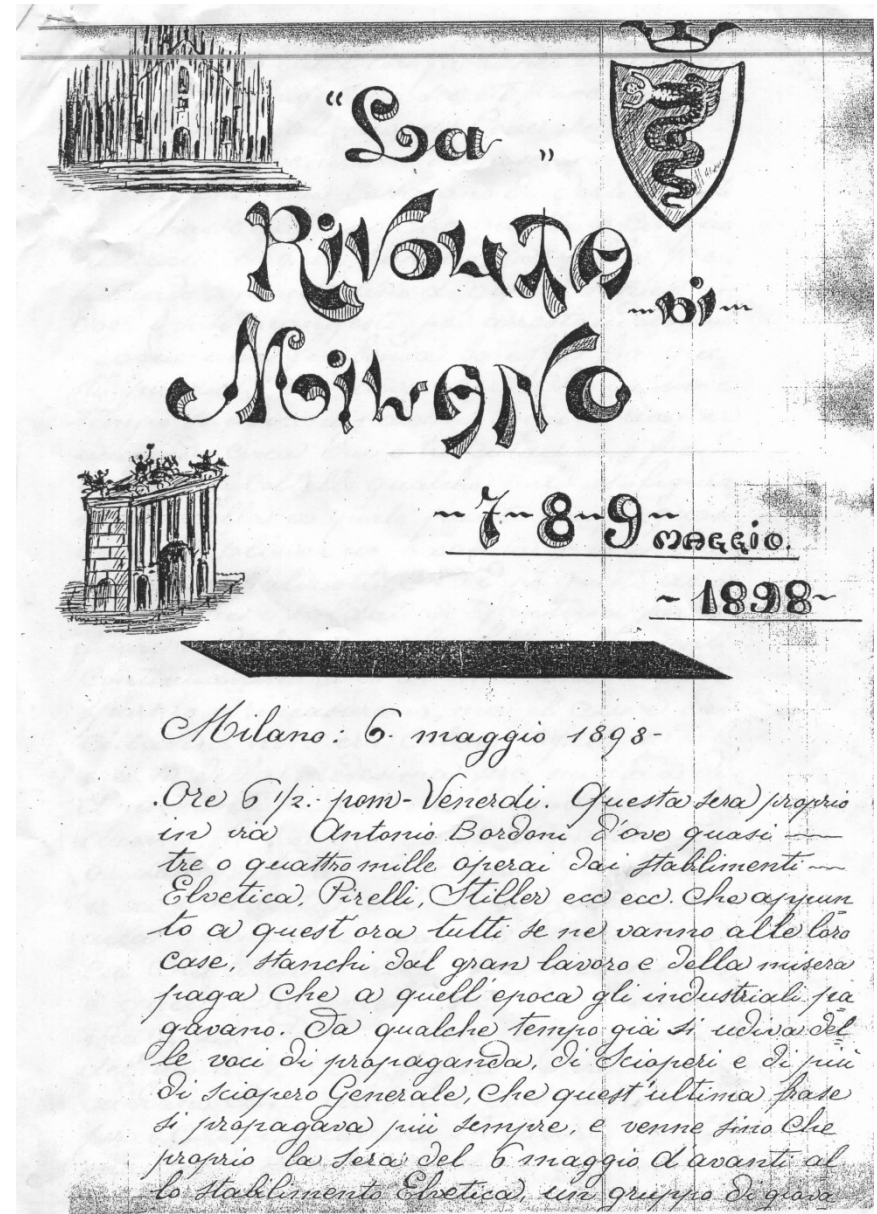 "La"
RiVOLTA
~Di~
MiLANO
~7~8~9~
MAGGIO.
~1898~
Milano: 6. maggio 1898-
Ore 6 1/2. pom- Venerdi. Questa sera proprio
in via Antonio Bordoni d'ove quasi
tre o quattro mille operai dai stabilimenti
Elvetica, Pirelli, Stiller ecc ecc. che appun
to a quest'ora tutti se ne vanno alle loro
case, stanchi dal gran lavoro e della misera
paga che a quell'epoca gli industriali pa
gavano. Da qualche tempo già si udiva del
le voci di propaganda, di Scioperi e di più
di sciopero Generale, che quest'ultima frase
si propagava più sempre, e venne sino che
proprio la sera del 6 maggio davanti al
lo stabilimento Elvetica, un gruppo di giova